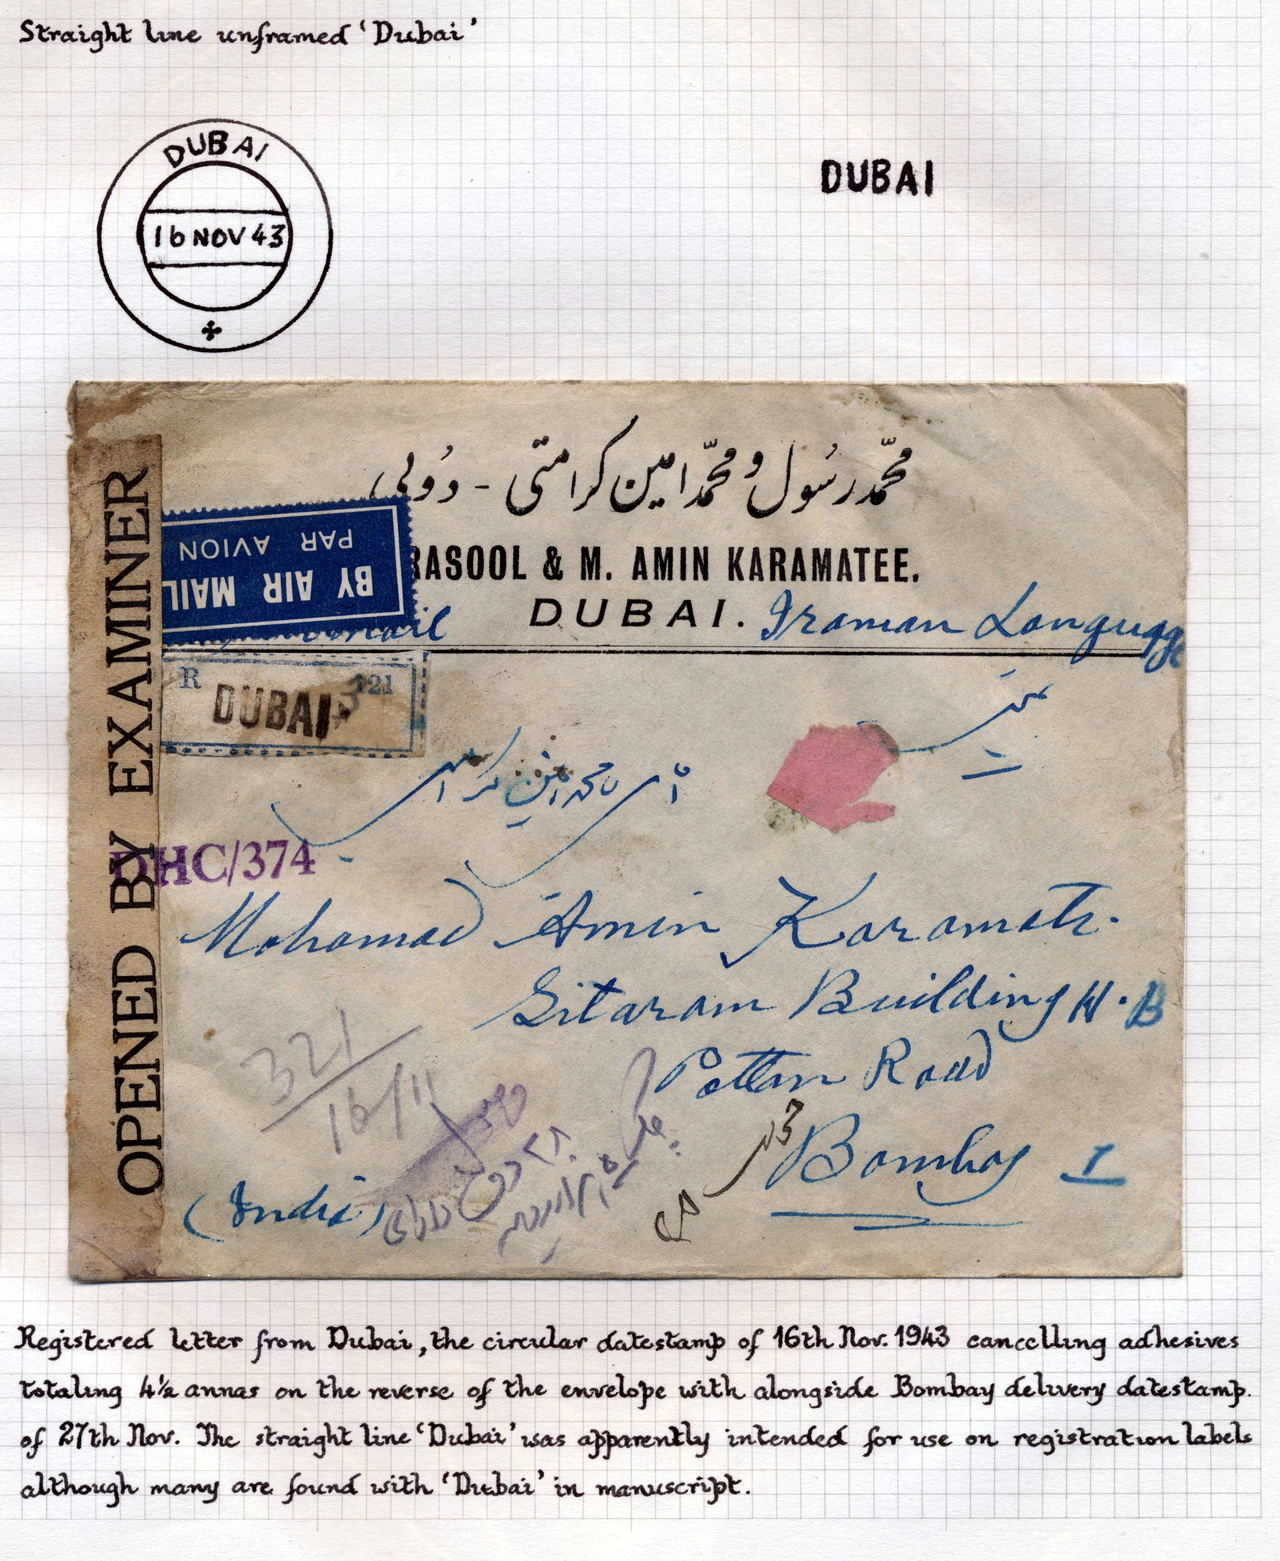 Straight line unframed 'Dubai'
DUBAI
16 NOV 43
DUBAI
محمّد رسُول و محمّد امین کرامتی - دُوبی
RASOOL & M. AMIN KARAMATEE.
DUBAI. Iranian Langugge
BY AIR MAIL
PAR AVION
R DUBAI 321
OPENED BY EXAMINER
DHC/374
Mohamad Amin Karamati.
Sitaram Building H.B
Pattan Road
Bombay 1
(India)
321
16/11
Registered letter from Dubai, the circular datestamp of 16th Nov. 1943 cancelling adhesives
totaling 4½ annas on the reverse of the envelope with alongside Bombay delivery datestamp.
of 27th Nov. The straight line 'Dubai' was apparently intended for use on registration labels
although many are found with 'Dubai' in manuscript.